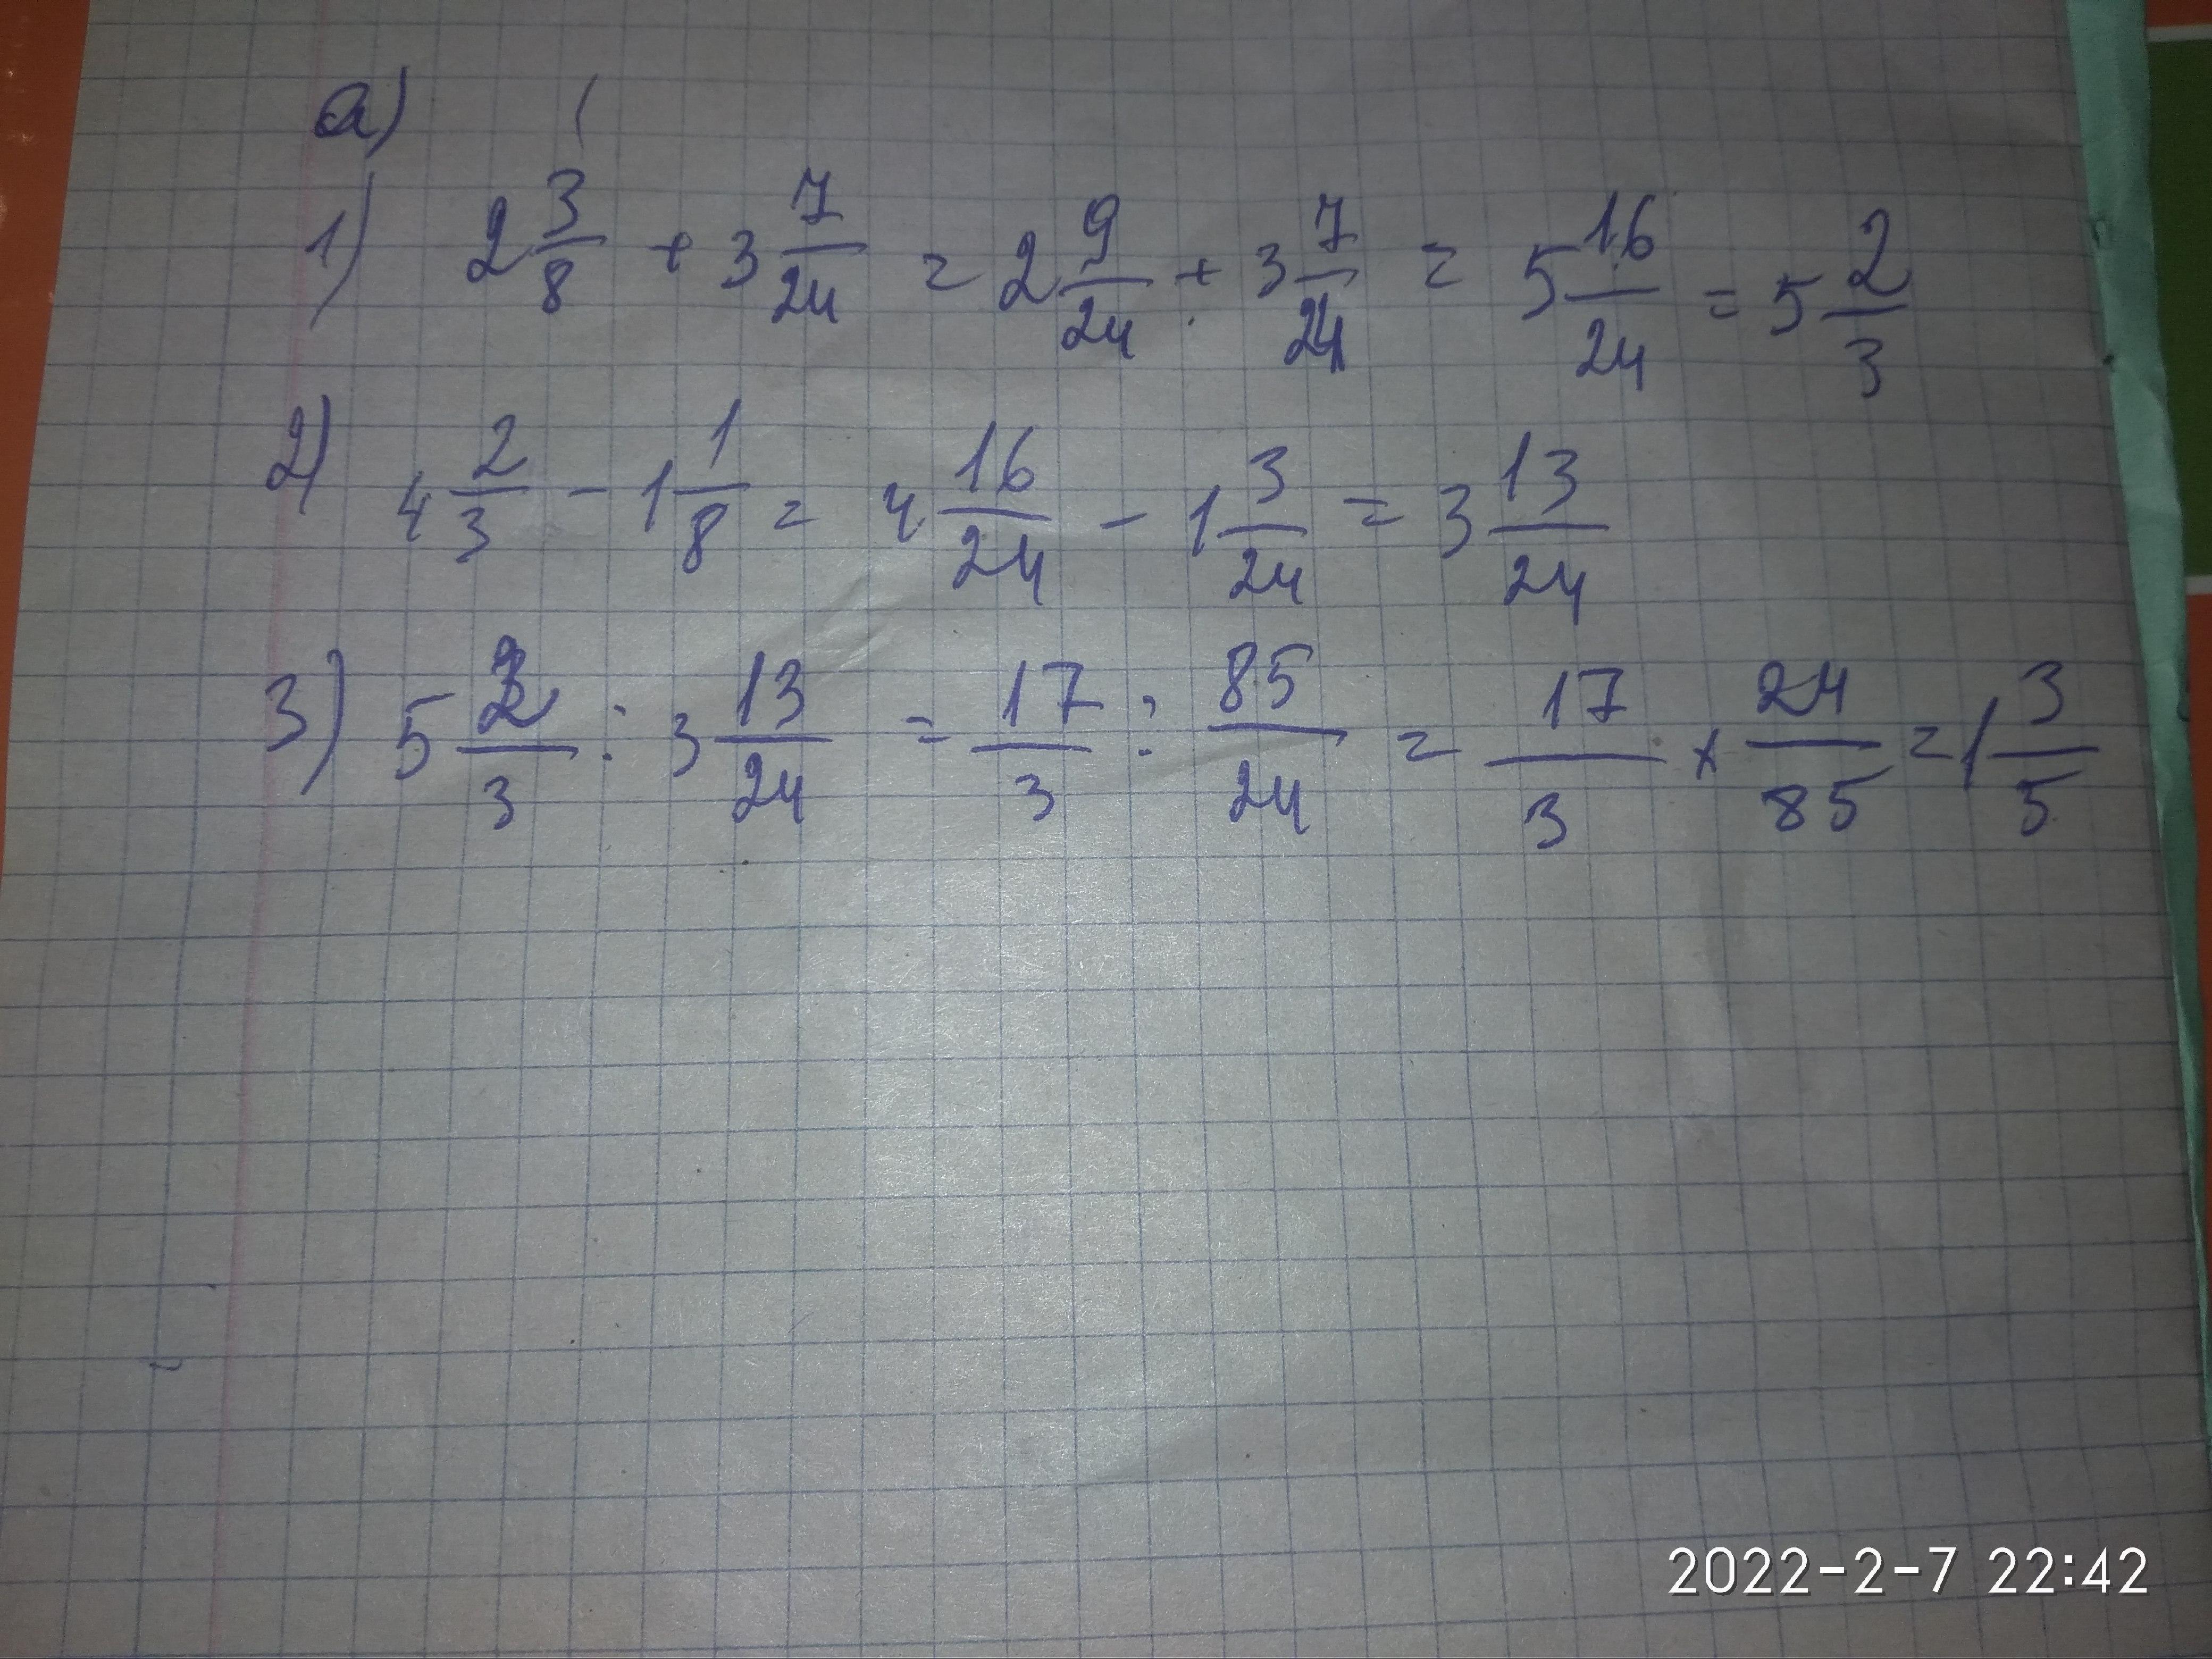 а) (
1) 2 3/8 + 3 7/24 = 2 9/24 + 3 7/24 = 5 16/24 = 5 2/3
2) 4 2/3 - 1 1/8 = 4 16/24 - 1 3/24 = 3 13/24
3) 5 2/3 : 3 13/24 = 17/3 : 85/24 = 17/3 × 24/85 = 1 3/5
2022-2-7 22:42